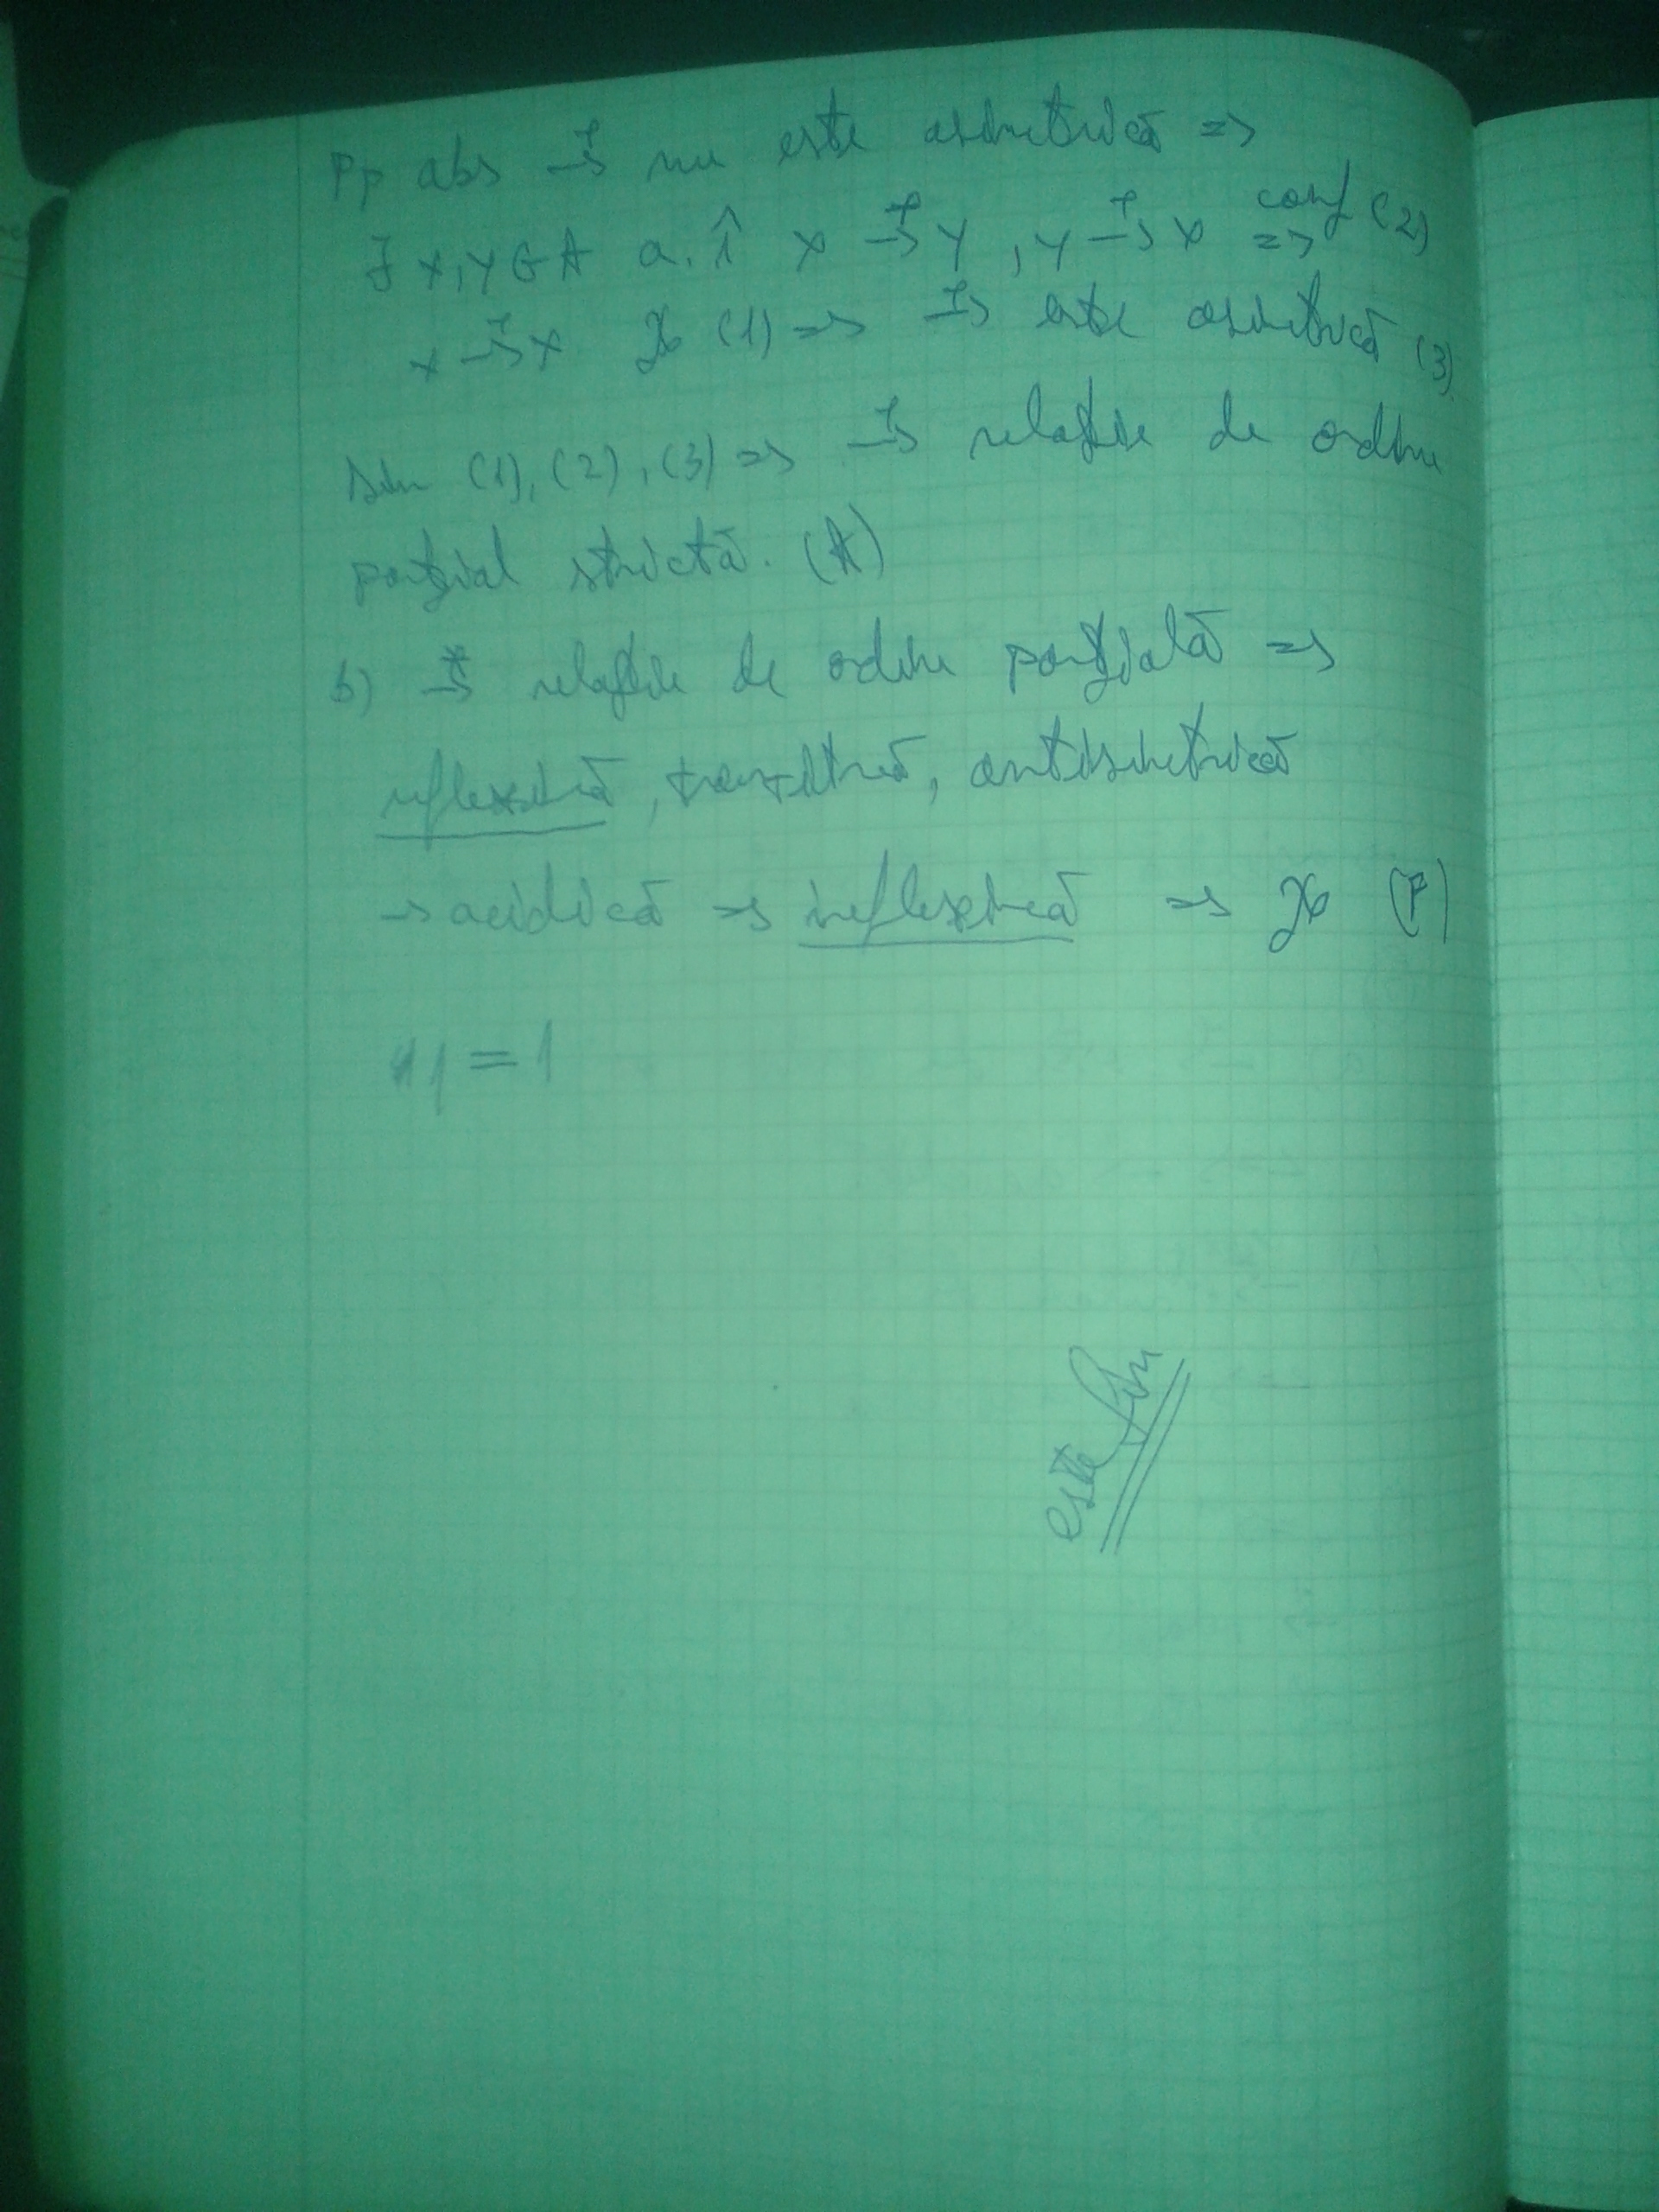 Pp abs →⁺ nu este asimetrică =>
∃ x,y ∈ A a.î x →⁺ y , y →⁺ x =>^{conf (2)}
x →⁺ x (1) => →⁺ este asimetrică (3)
Din (1), (2), (3) => →⁺ relație de ordine
parțial strictă. (A)
b) →* relație de ordine parțială =>
reflexivă, tranzitivă, antisimetrică
→ aciclică => ireflexivă => (F)
= 1
este